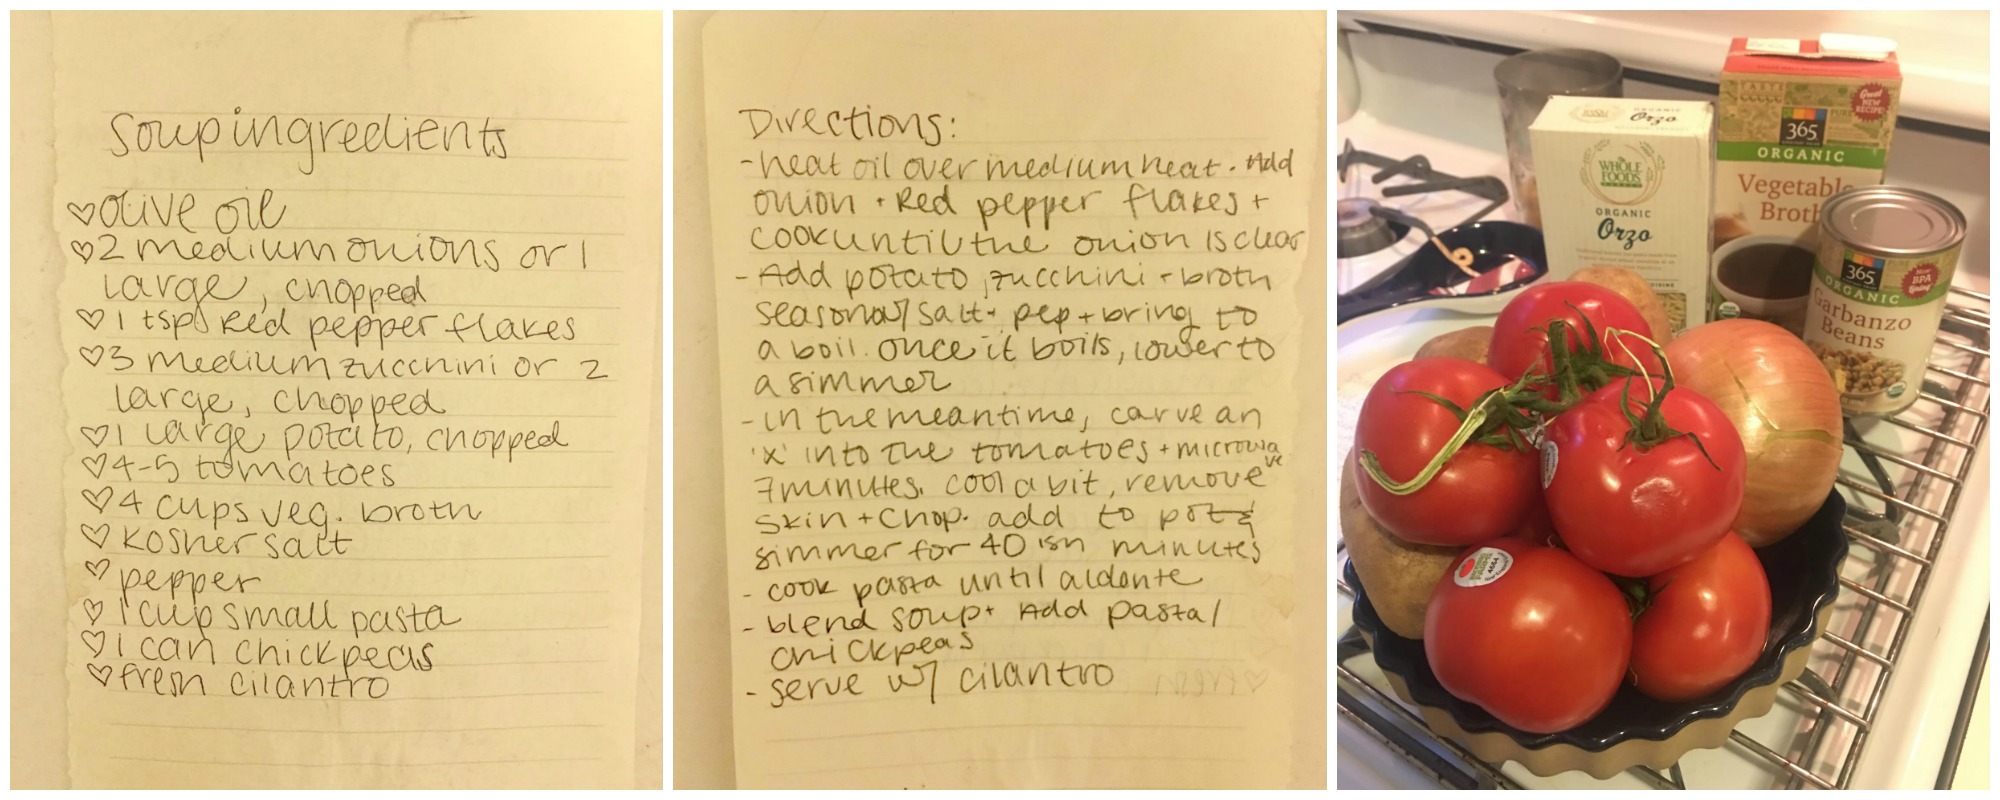 Soup ingredients
♡ olive oil
♡ 2 medium onions or 1
large, chopped
♡ 1 tsp Red pepper flakes
♡ 3 medium zucchini or 2
large, chopped
♡ 1 large potato, chopped
♡ 4-5 tomatoes
♡ 4 cups veg. broth
♡ kosher salt
♡ pepper
♡ 1 cup small pasta
♡ 1 can chickpeas
♡ fresh cilantro
Directions:
- heat oil over medium heat. Add
onion + Red pepper flakes +
cook until the onion is clear
- Add potato, zucchini + broth
season w/ salt + pep + bring to
a boil. once it boils, lower to
a simmer
- in the meantime, carve an
'x' into the tomatoes + microwa
ve
7 minutes. cool a bit, remove
skin + chop. add to pot &
simmer for 40 ish minutes
- cook pasta until aldente
- blend soup + Add pasta/
chickpeas
- serve w/ cilantro
ORGANIC
Orzo
WHOLE
FOODS
MARKET
ORGANIC
Orzo
Great
NEW
RECIPE!
365
ORGANIC
Vegetable
Broth
365
New
BPA
ORGANIC
Garbanzo
Beans
4664